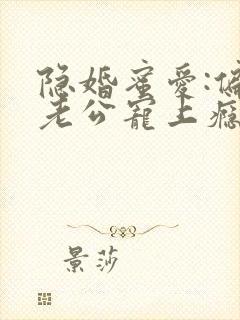 隐婚蜜爱:偏
老公宠上瘾
景莎